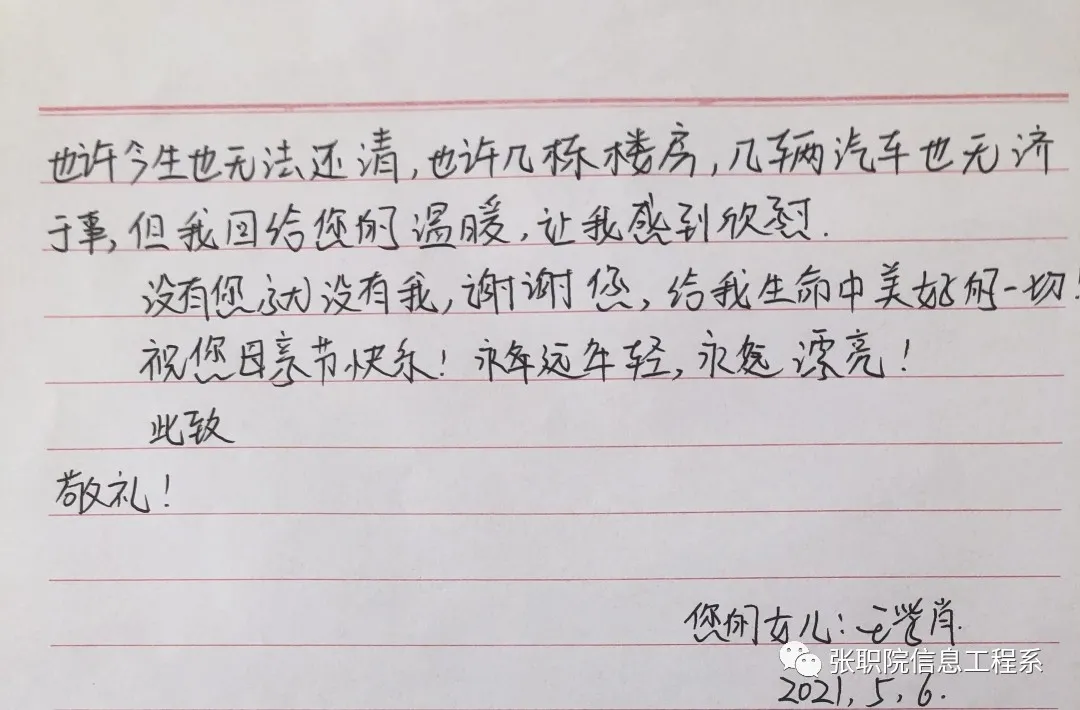 也许今生也无法还清,也许几栋楼房,几辆汽车也无济
于事,但我回给您的温暖,让我感到欣慰.
没有您就没有我,谢谢您,给我生命中美好的一切!
祝您母亲节快乐!永远年轻,永远漂亮!
此致
敬礼!
您的女儿:王肖
张职院信息工程系
2021.5.6.